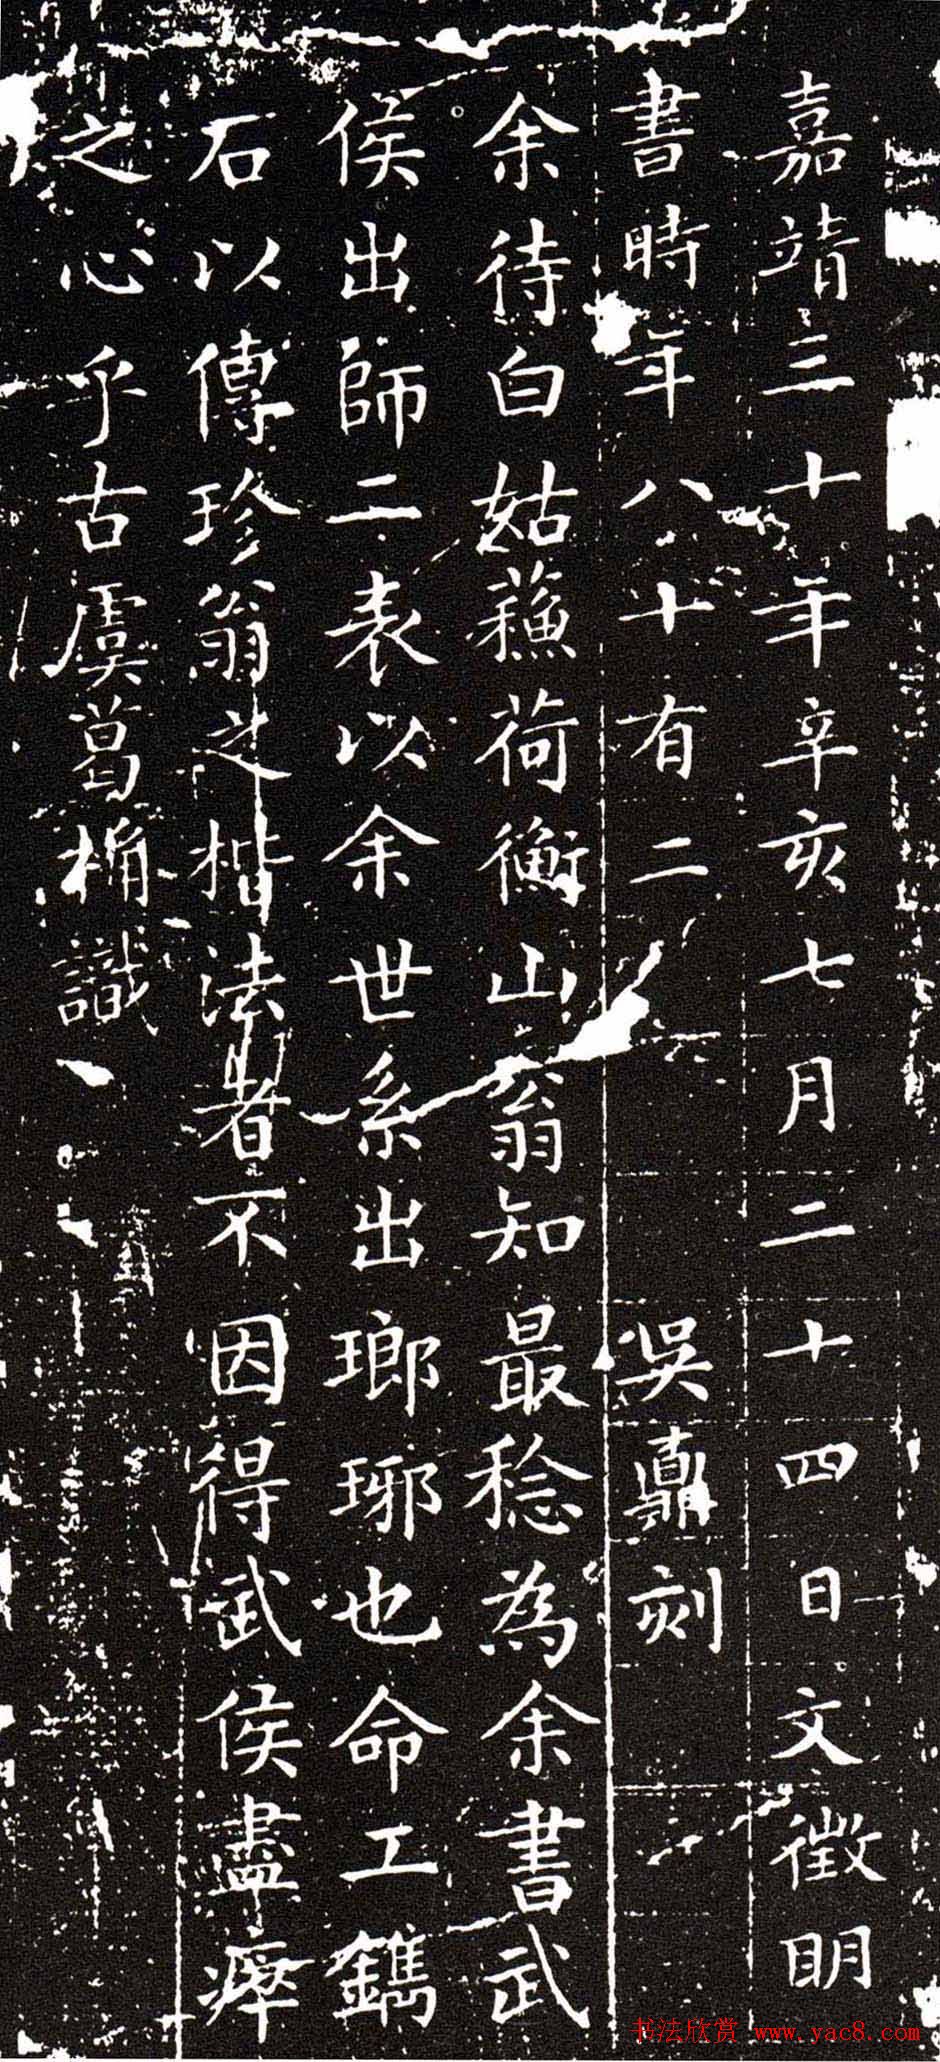 嘉靖三十年辛亥七月二十四日文徵明
書時年八十有二 吳鼒刻
余待白姑蘓荷衡山翁知最稔為余書武
侯出師二表以余世系出瑯琊也命工鐫
石以傳珍翁之楷法者不因得武侯盡瘁
之心乎古虞葛桷識
书法欣赏 www.yac8.com